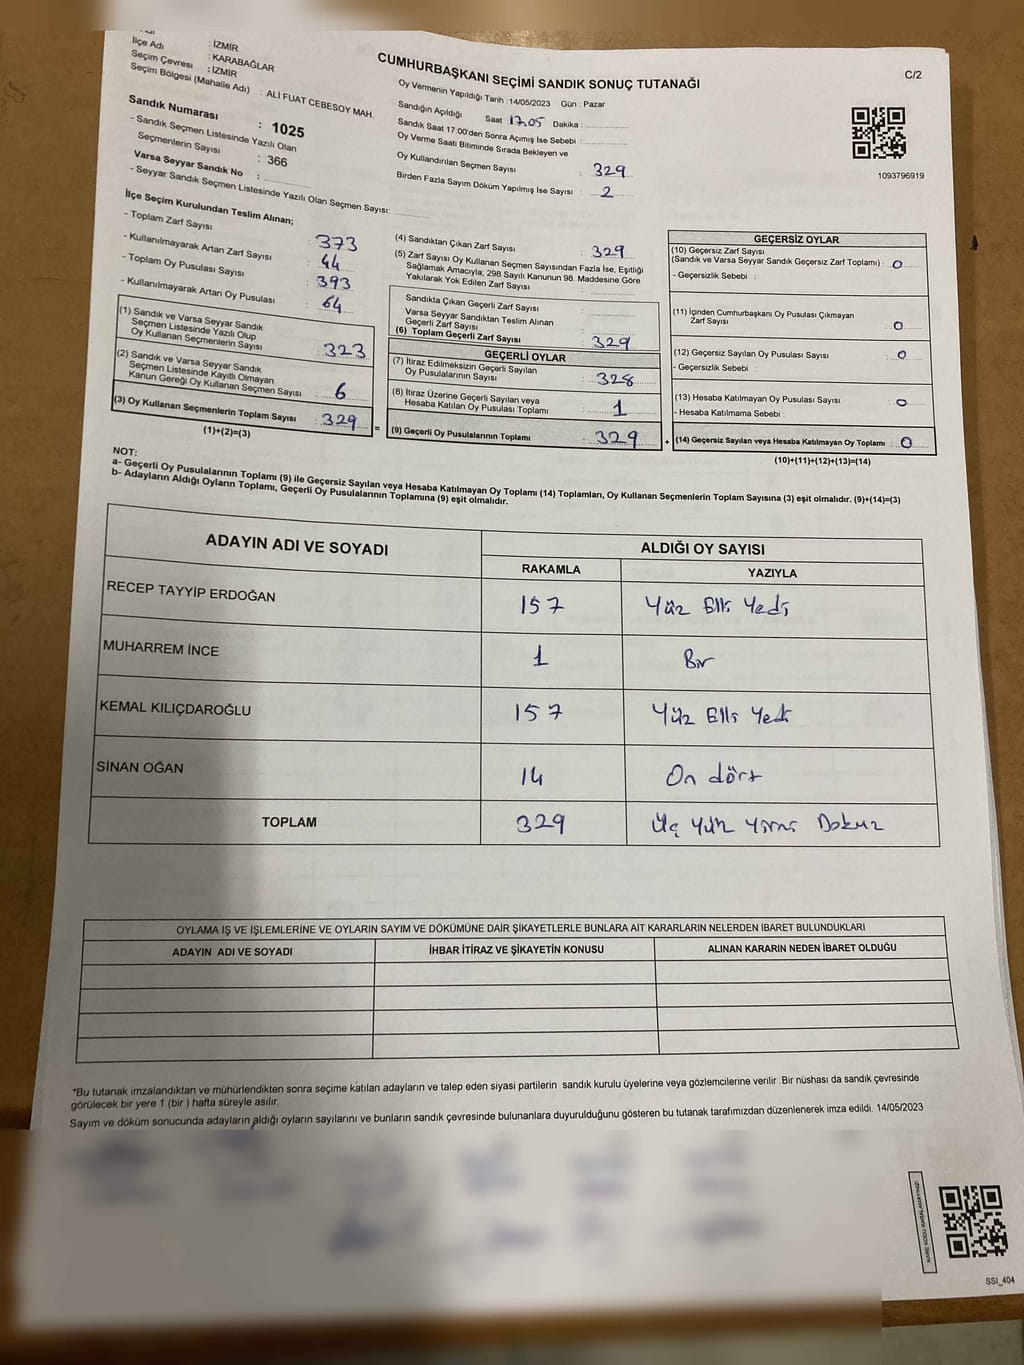 İlçe Adı : İZMİR
Seçim Çevresi : KARABAĞLAR
Seçim Bölgesi (Mahalle Adı) : İZMİR
: ALİ FUAT CEBESOY MAH.
Sandık Numarası : 1025
- Sandık Seçmen Listesinde Yazılı Olan
Seçmenlerin Sayısı : 366
Varsa Seyyar Sandık No :
- Seyyar Sandık Seçmen Listesinde Yazılı Olan Seçmen Sayısı:
CUMHURBAŞKANI SEÇİMİ SANDIK SONUÇ TUTANAĞI
C/2
Oy Vermenin Yapıldığı Tarih : 14/05/2023 Gün : Pazar
Sandığın Açıldığı Saat : 17.05 Dakika :
Sandık Saat 17:00'den Sonra Açımış İse Sebebi :
Oy Verme Saati Bitiminde Sırada Bekleyen ve
Oy Kullandırılan Seçmen Sayısı : 329
Birden Fazla Sayım Döküm Yapılmış İse Sayısı : 2
1093796919
İlçe Seçim Kurulundan Teslim Alınan;
- Toplam Zarf Sayısı : 373
- Kullanılmayarak Artan Zarf Sayısı : 44
- Toplam Oy Pusulası Sayısı : 393
- Kullanılmayarak Artan Oy Pusulası : 64
(1) Sandık ve Varsa Seyyar Sandık
Seçmen Listesinde Yazılı Olup
Oy Kullanan Seçmenlerin Sayısı : 323
(2) Sandık ve Varsa Seyyar Sandık
Seçmen Listesinde Kayıtlı Olmayan
Kanun Gereği Oy Kullanan Seçmen Sayısı : 6
(3) Oy Kullanan Seçmenlerin Toplam Sayısı : 329
(1)+(2)=(3)
=
(4) Sandıktan Çıkan Zarf Sayısı : 329
(5) Zarf Sayısı Oy Kullanan Seçmen Sayısından Fazla İse, Eşitliği
Sağlamak Amacıyla; 298 Sayılı Kanunun 98. Maddesine Göre
Yakılarak Yok Edilen Zarf Sayısı :
Sandıkta Çıkan Geçerli Zarf Sayısı :
Varsa Seyyar Sandıktan Teslim Alınan
Geçerli Zarf Sayısı :
(6) Toplam Geçerli Zarf Sayısı : 329
GEÇERLİ OYLAR
(7) İtiraz Edilmeksizin Geçerli Sayılan
Oy Pusulalarının Sayısı : 328
(8) İtiraz Üzerine Geçerli Sayılan veya
Hesaba Katılan Oy Pusulası Toplamı : 1
(9) Geçerli Oy Pusulalarının Toplamı : 329
+
GEÇERSİZ OYLAR
(10) Geçersiz Zarf Sayısı
(Sandık ve Varsa Seyyar Sandık Geçersiz Zarf Toplamı) : 0
- Geçersizlik Sebebi :
(11) İçinden Cumhurbaşkanı Oy Pusulası Çıkmayan
Zarf Sayısı : 0
(12) Geçersiz Sayılan Oy Pusulası Sayısı : 0
- Geçersizlik Sebebi :
(13) Hesaba Katılmayan Oy Pusulası Sayısı : 0
- Hesaba Katılmama Sebebi :
(14) Geçersiz Sayılan veya Hesaba Katılmayan Oy Toplamı : 0
(10)+(11)+(12)+(13)=(14)
NOT:
a- Geçerli Oy Pusulalarının Toplamı (9) ile Geçersiz Sayılan veya Hesaba Katılmayan Oy Toplamı (14) Toplamları, Oy Kullanan Seçmenlerin Toplam Sayısına (3) eşit olmalıdır. (9)+(14)=(3)
b- Adayların Aldığı Oyların Toplamı, Geçerli Oy Pusulalarının Toplamına (9) eşit olmalıdır.
ADAYIN ADI VE SOYADI ALDIĞI OY SAYISI
RAKAMLA YAZIYLA
RECEP TAYYİP ERDOĞAN 157 Yüz Elli Yedi
MUHARREM İNCE 1 Bir
KEMAL KILIÇDAROĞLU 157 Yüz Elli Yedi
SİNAN OĞAN 14 On dört
TOPLAM 329 Üç Yüz Yirmi Dokuz
OYLAMA İŞ VE İŞLEMLERİNE VE OYLARIN SAYIM VE DÖKÜMÜNE DAİR ŞİKAYETLERLE BUNLARA AİT KARARLARIN NELERDEN İBARET BULUNDUKLARI
ADAYIN ADI VE SOYADI İHBAR İTİRAZ VE ŞİKAYETİN KONUSU ALINAN KARARIN NEDEN İBARET OLDUĞU
*Bu tutanak imzalandıktan ve mühürlendikten sonra seçime katılan adayların ve talep eden siyasi partilerin sandık kurulu üyelerine veya gözlemcilerine verilir .Bir nüshası da sandık çevresinde
görülecek bir yere 1 (bir ) hafta süreyle asılır.
Sayım ve döküm sonucunda adayların aldığı oyların sayılarını ve bunların sandık çevresinde bulunanlara duyurulduğunu gösteren bu tutanak tarafımızdan düzenlenerek imza edildi. 14/05/2023
KARE KODU KARALAMAYINIZ!
SSI_404